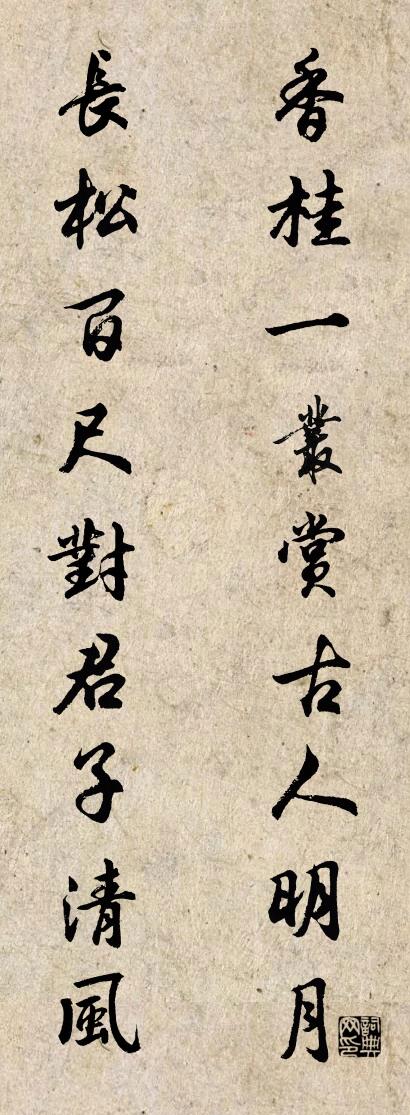 香桂一叢賞古人明月
長松百尺對君子清風
詞典網印